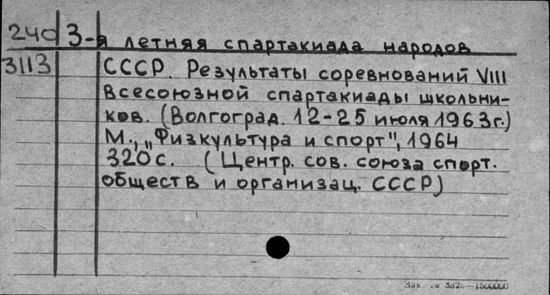 240 3-я летняя спартакиада народов
3113 СССР. Результаты соревнований VIII
всесоюзной спартакиады школьни-
ков. (Волгоград. 12-25 июля 1963г.)
М., „Физкультура и спорт", 1964
320с. (Центр. сов. союза спорт.
обществ и организац. СССР)
Зак. 3820—1500000